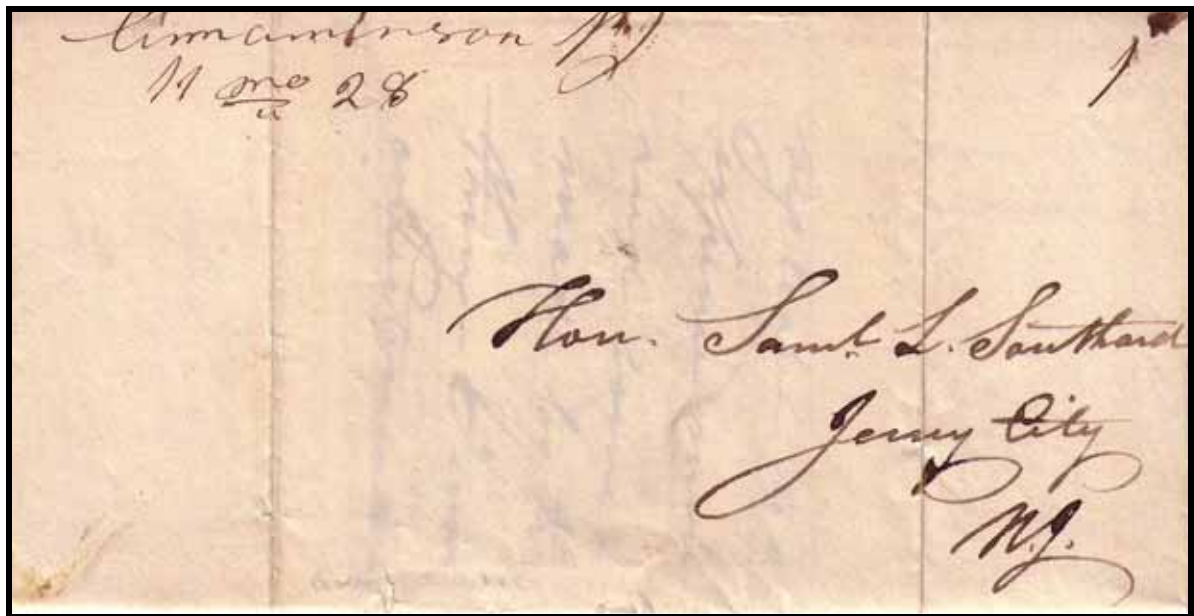 Cinnaminson NJ
11 mo 28
1
Hon. Saml. L. Southard
Jersey City
N.J.